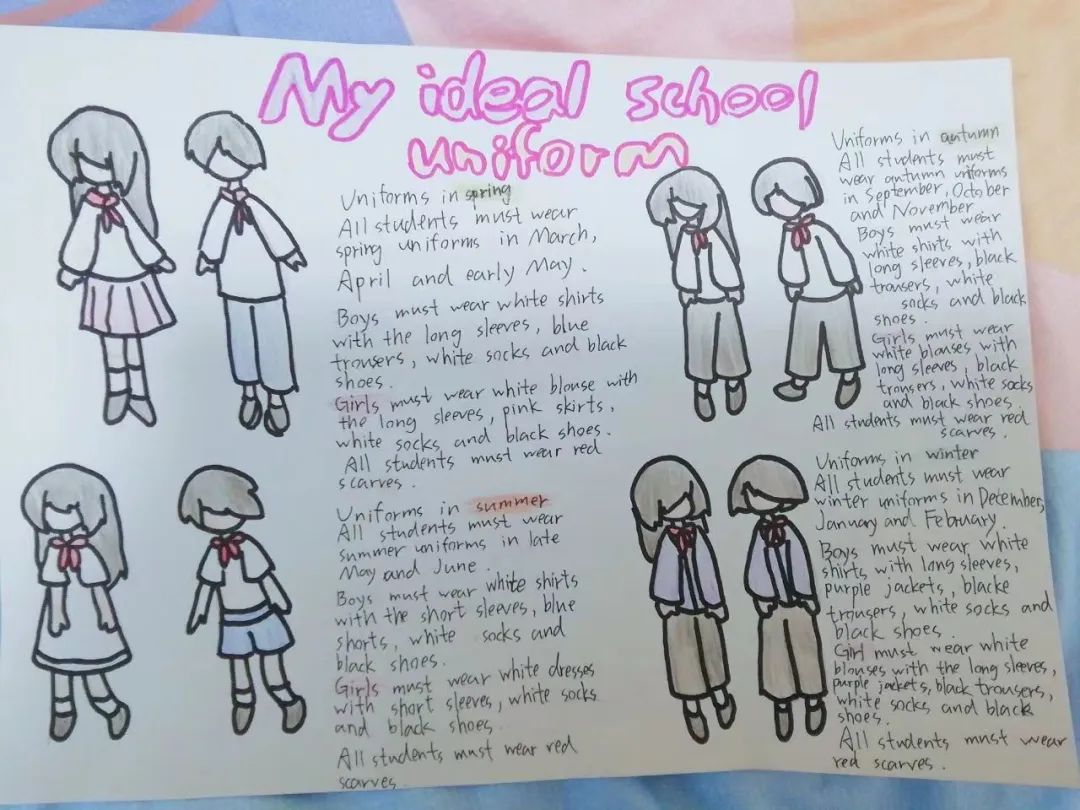 My ideal school
uniform
Uniforms in spring
All students must wear
spring uniforms in March,
April and early May.
Boys must wear white shirts
with the long sleeves, blue
trousers, white socks and black
shoes.
Girls must wear white blouse with
the long sleeves, pink skirts,
white socks and black shoes.
All students must wear red
scarves.
Uniforms in summer
All students must wear
summer uniforms in late
May and June.
Boys must wear white shirts
with the short sleeves, blue
shorts, white socks and
black shoes.
Girls must wear white dresses
with short sleeves, white socks
and black shoes.
All students must wear red
scarves.
Uniforms in autumn
All students must
wear autumn uniforms
in September, October
and November
Boys must wear
white shirts with
long sleeves, black
trousers, white
socks and black
shoes.
Girls must wear
white blouses with
long sleeves, black
trousers, white socks
and black shoes.
All students must wear red
scarves.
Uniforms in winter
All students must wear
winter uniforms in December,
January and February.
Boys must wear white
shirts with long sleeves,
purple jackets, blacke
trousers, white socks and
black shoes.
Girl must wear white
blouses with the long sleeves,
purple jackets, black trousers,
white socks and black
shoes.
All students must wear
red scarves.